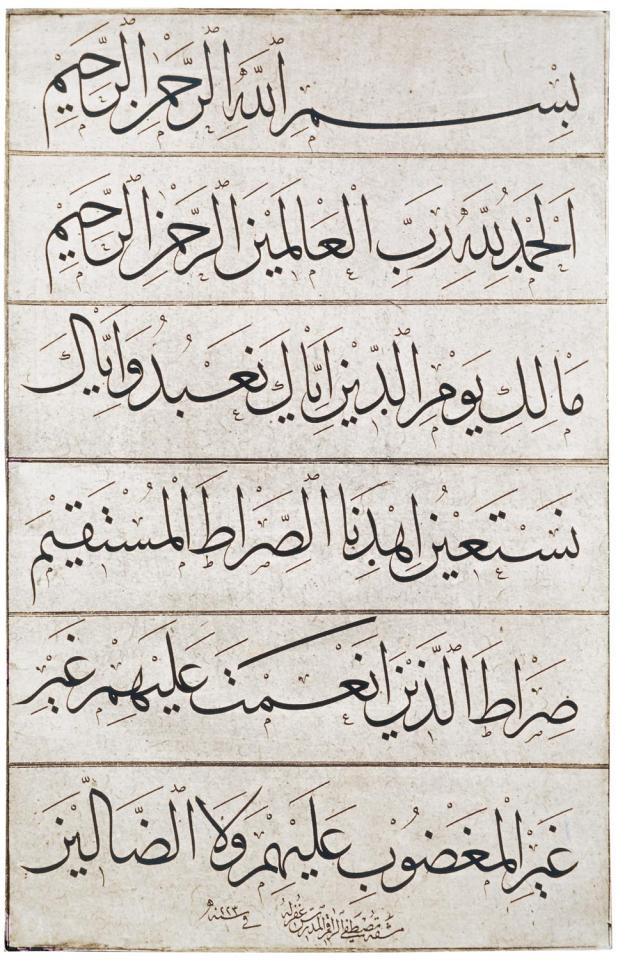 بِسْمِ اللّٰهِ الرَّحْمٰنِ الرَّحِيْمِ
اَلْحَمْدُ لِلّٰهِ رَبِّ الْعَالَمِيْنَ الرَّحْمٰنِ الرَّحِيْمِ
مَالِكِ يَوْمِ الدِّيْنِ اِيَّاكَ نَعْبُدُ وَاِيَّاكَ
نَسْتَعِيْنُ اِهْدِنَا الصِّرَاطَ الْمُسْتَقِيْمَ
صِرَاطَ الَّذِيْنَ اَنْعَمْتَ عَلَيْهِمْ غَيْرِ
غَيْرِ الْمَغْضُوْبِ عَلَيْهِمْ وَلَا الضَّالِّيْنَ
مشقه مصطفى الراقم المدرس غفر له في سنه